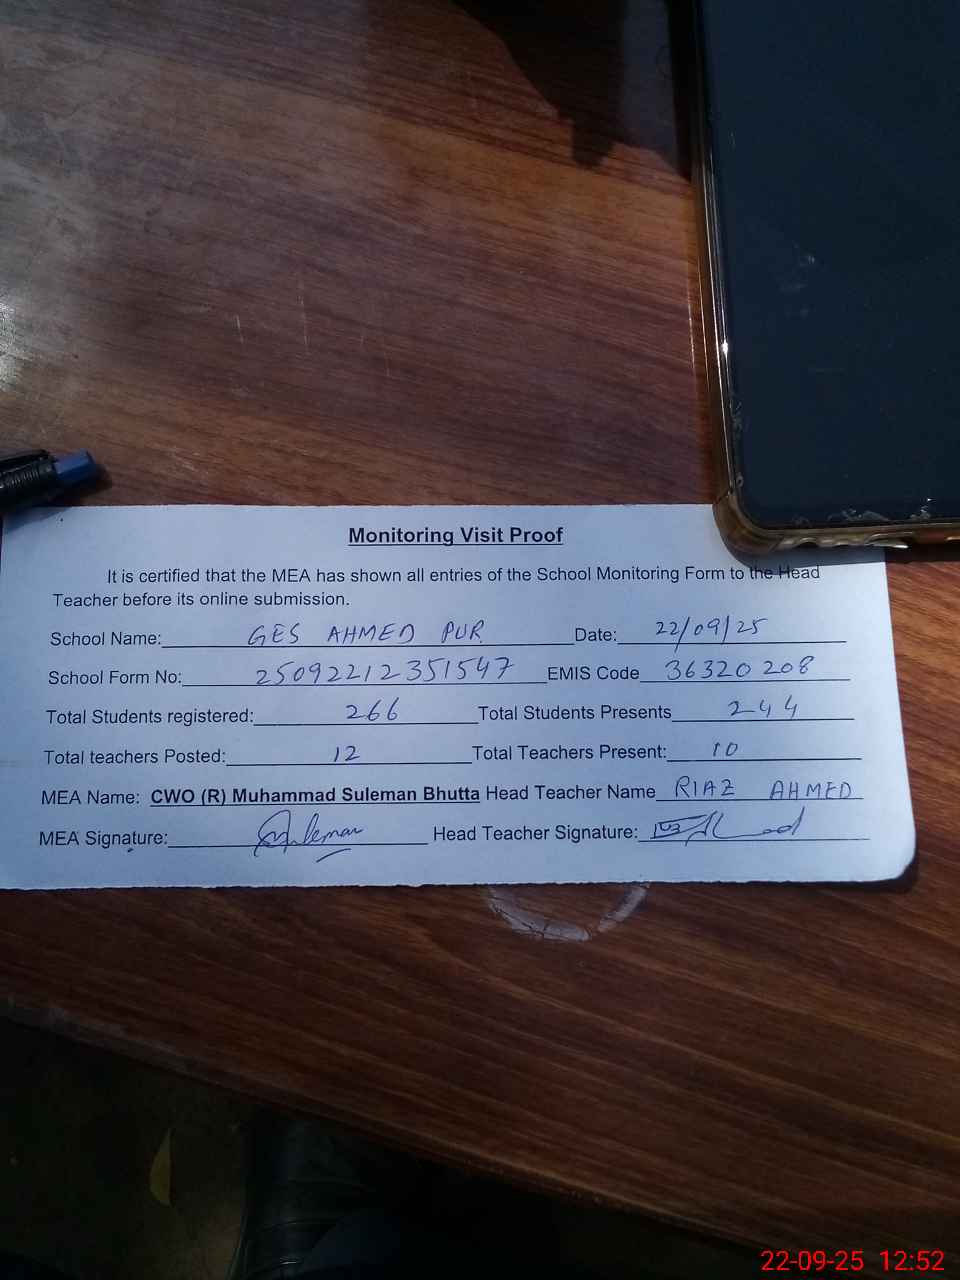 Monitoring Visit Proof
It is certified that the MEA has shown all entries of the School Monitoring Form to the Head
Teacher before its online submission.
School Name: GES AHMED PUR Date: 22/09/25
School Form No: 25092212351547 EMIS Code 36320208
Total Students registered: 266 Total Students Presents 244
Total teachers Posted: 12 Total Teachers Present: 10
MEA Name: CWO (R) Muhammad Suleman Bhutta Head Teacher Name RIAZ AHMED
MEA Signature: Suleman Head Teacher Signature:
22-09-25 12:52